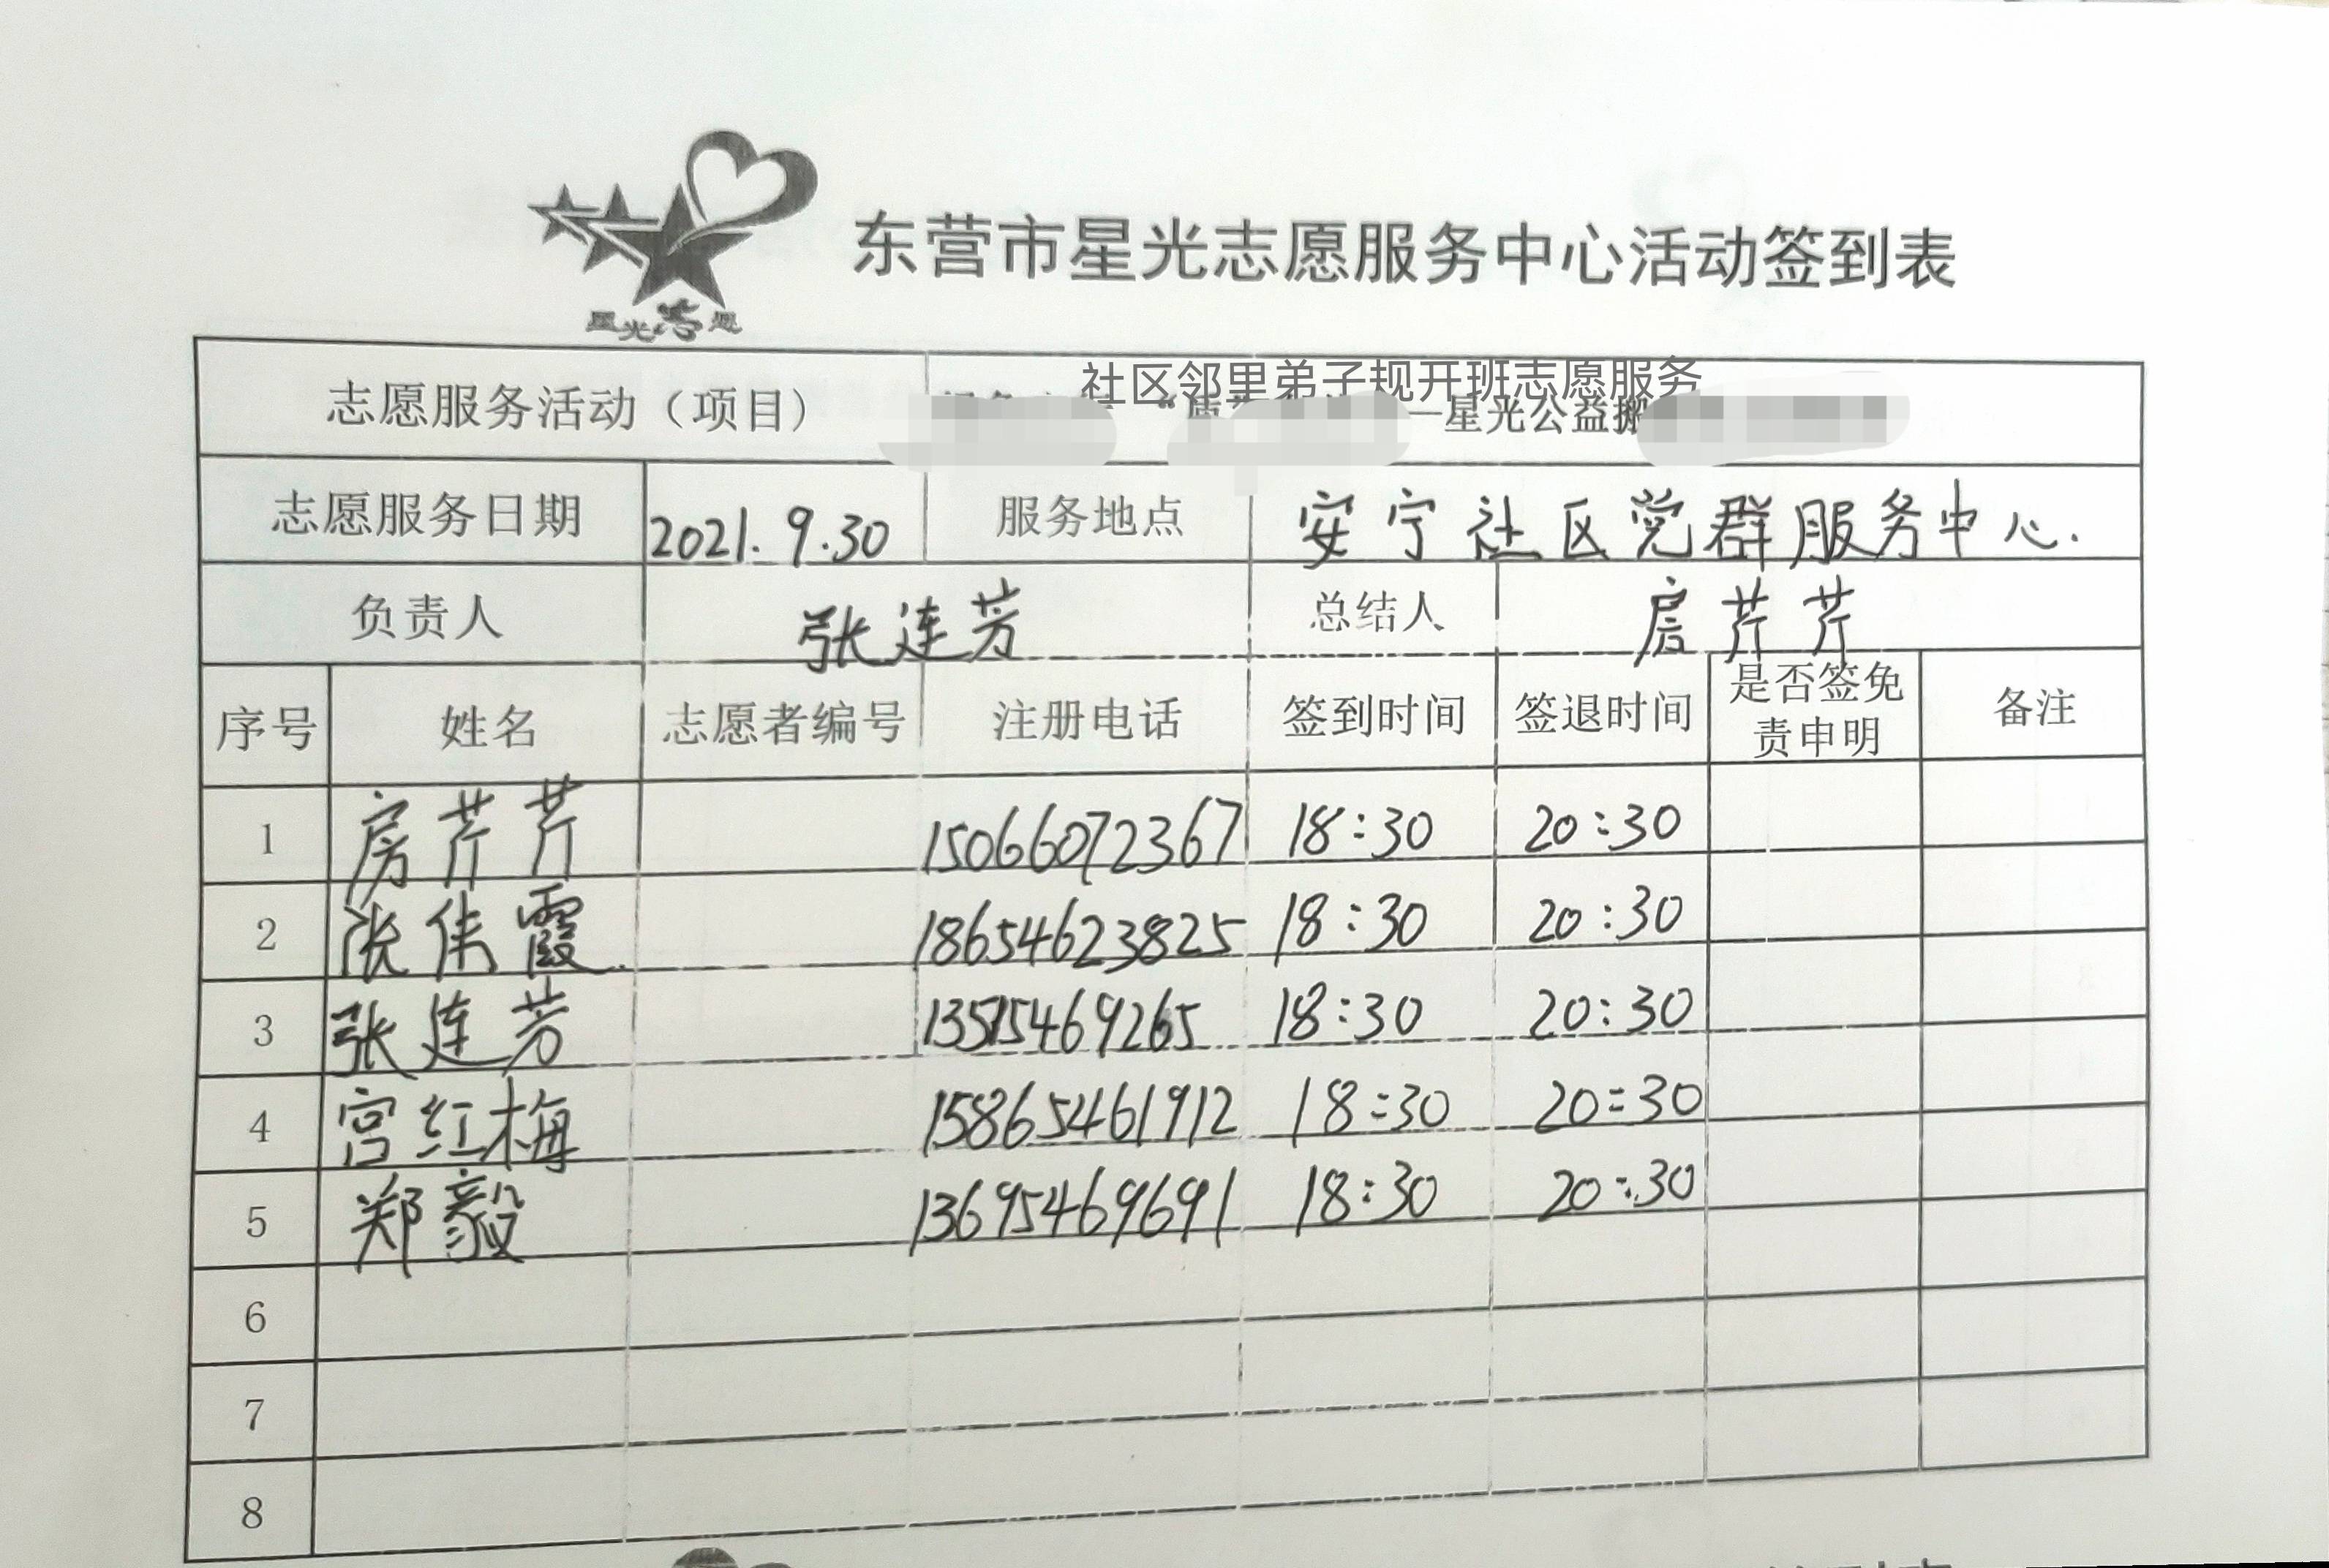 东营市星光志愿服务中心活动签到表
星光志愿
志愿服务活动（项目） 社区邻里弟子规开班志愿服务
—星光公益搬
志愿服务日期 2021.9.30 服务地点 安宁社区党群服务中心.
负责人 张连芳 总结人 房芹芹
序号 姓名 志愿者编号 注册电话 签到时间 签退时间 是否签免责申明 备注
1 房芹芹 15066072367 18:30 20:30
2 张伟霞 18654623825 18:30 20:30
3 张连芳 13515469265 18:30 20:30
4 宫红梅 15865461912 18:30 20:30
5 郑毅 13695469691 18:30 20:30
6
7
8